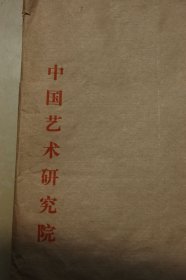 中国艺术研究院